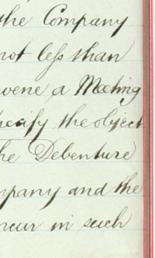 the Company
not less than
vene a Meeting
pecify the object
he Debenture
mpany and the
ncur in such